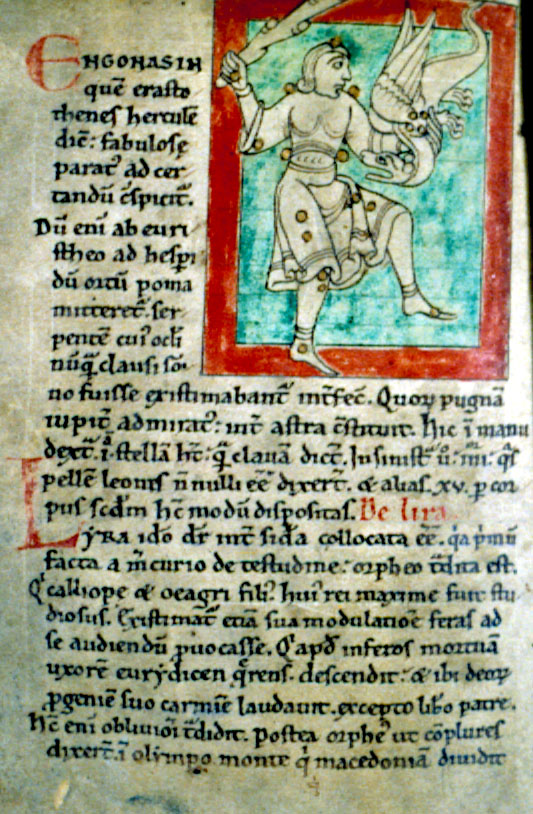 ENGONASIN
quē erasto
thenes herculē
dic̄: fabulosę
parat᷒ ad cer
tandū c̄spicit᷒.
Dū eni ab euri
stheo ad hespi
dū ortū poma
mitteret᷒. ser
pentē cui᷒ ocl̄i
nūq̄ clausi sō
no fuisse existimabant᷒ int̄fec̄. Quoꝝ pugnā
iupit᷒ admirat᷒: int̄ astra c̄stituit. hic ī manu
dext᷒ ī stellā ht̄: q̄ clauā dict̄. In sinist᷒ u᷒: iiii: q̄s
pellē leonis n̄ nulli eē dixer̄t. & alias .xv. ꝑ cor
pus scd̄m hc̄ modū dispositas. De lira
LYRA ido dr̄ int̄ sid̄a collocata eē. q̄a p̄mū
facta a m̄curio de testudine: orpheo t̄dita est.
Q᷒ calliope & oeagri fili᷒. hui᷒ rei maxime fuit stu
diosus. Existimat᷒ etiā sua modulatioē feras ad
se audiendū ꝓuocasse. Q᷒ apd̄ inferos mortuā
uxorē eurydicen q̄rens. descendit: & ibi deoꝝ
ꝓgeniē suo carmīe laudauit. excepto lib᷒o patre.
Hc̄ eni obliuioī t̄didit. Postea orphe᷒ ut cōplures
dixer̄t. ī olimpo monte q̄ macedoniā diuidit